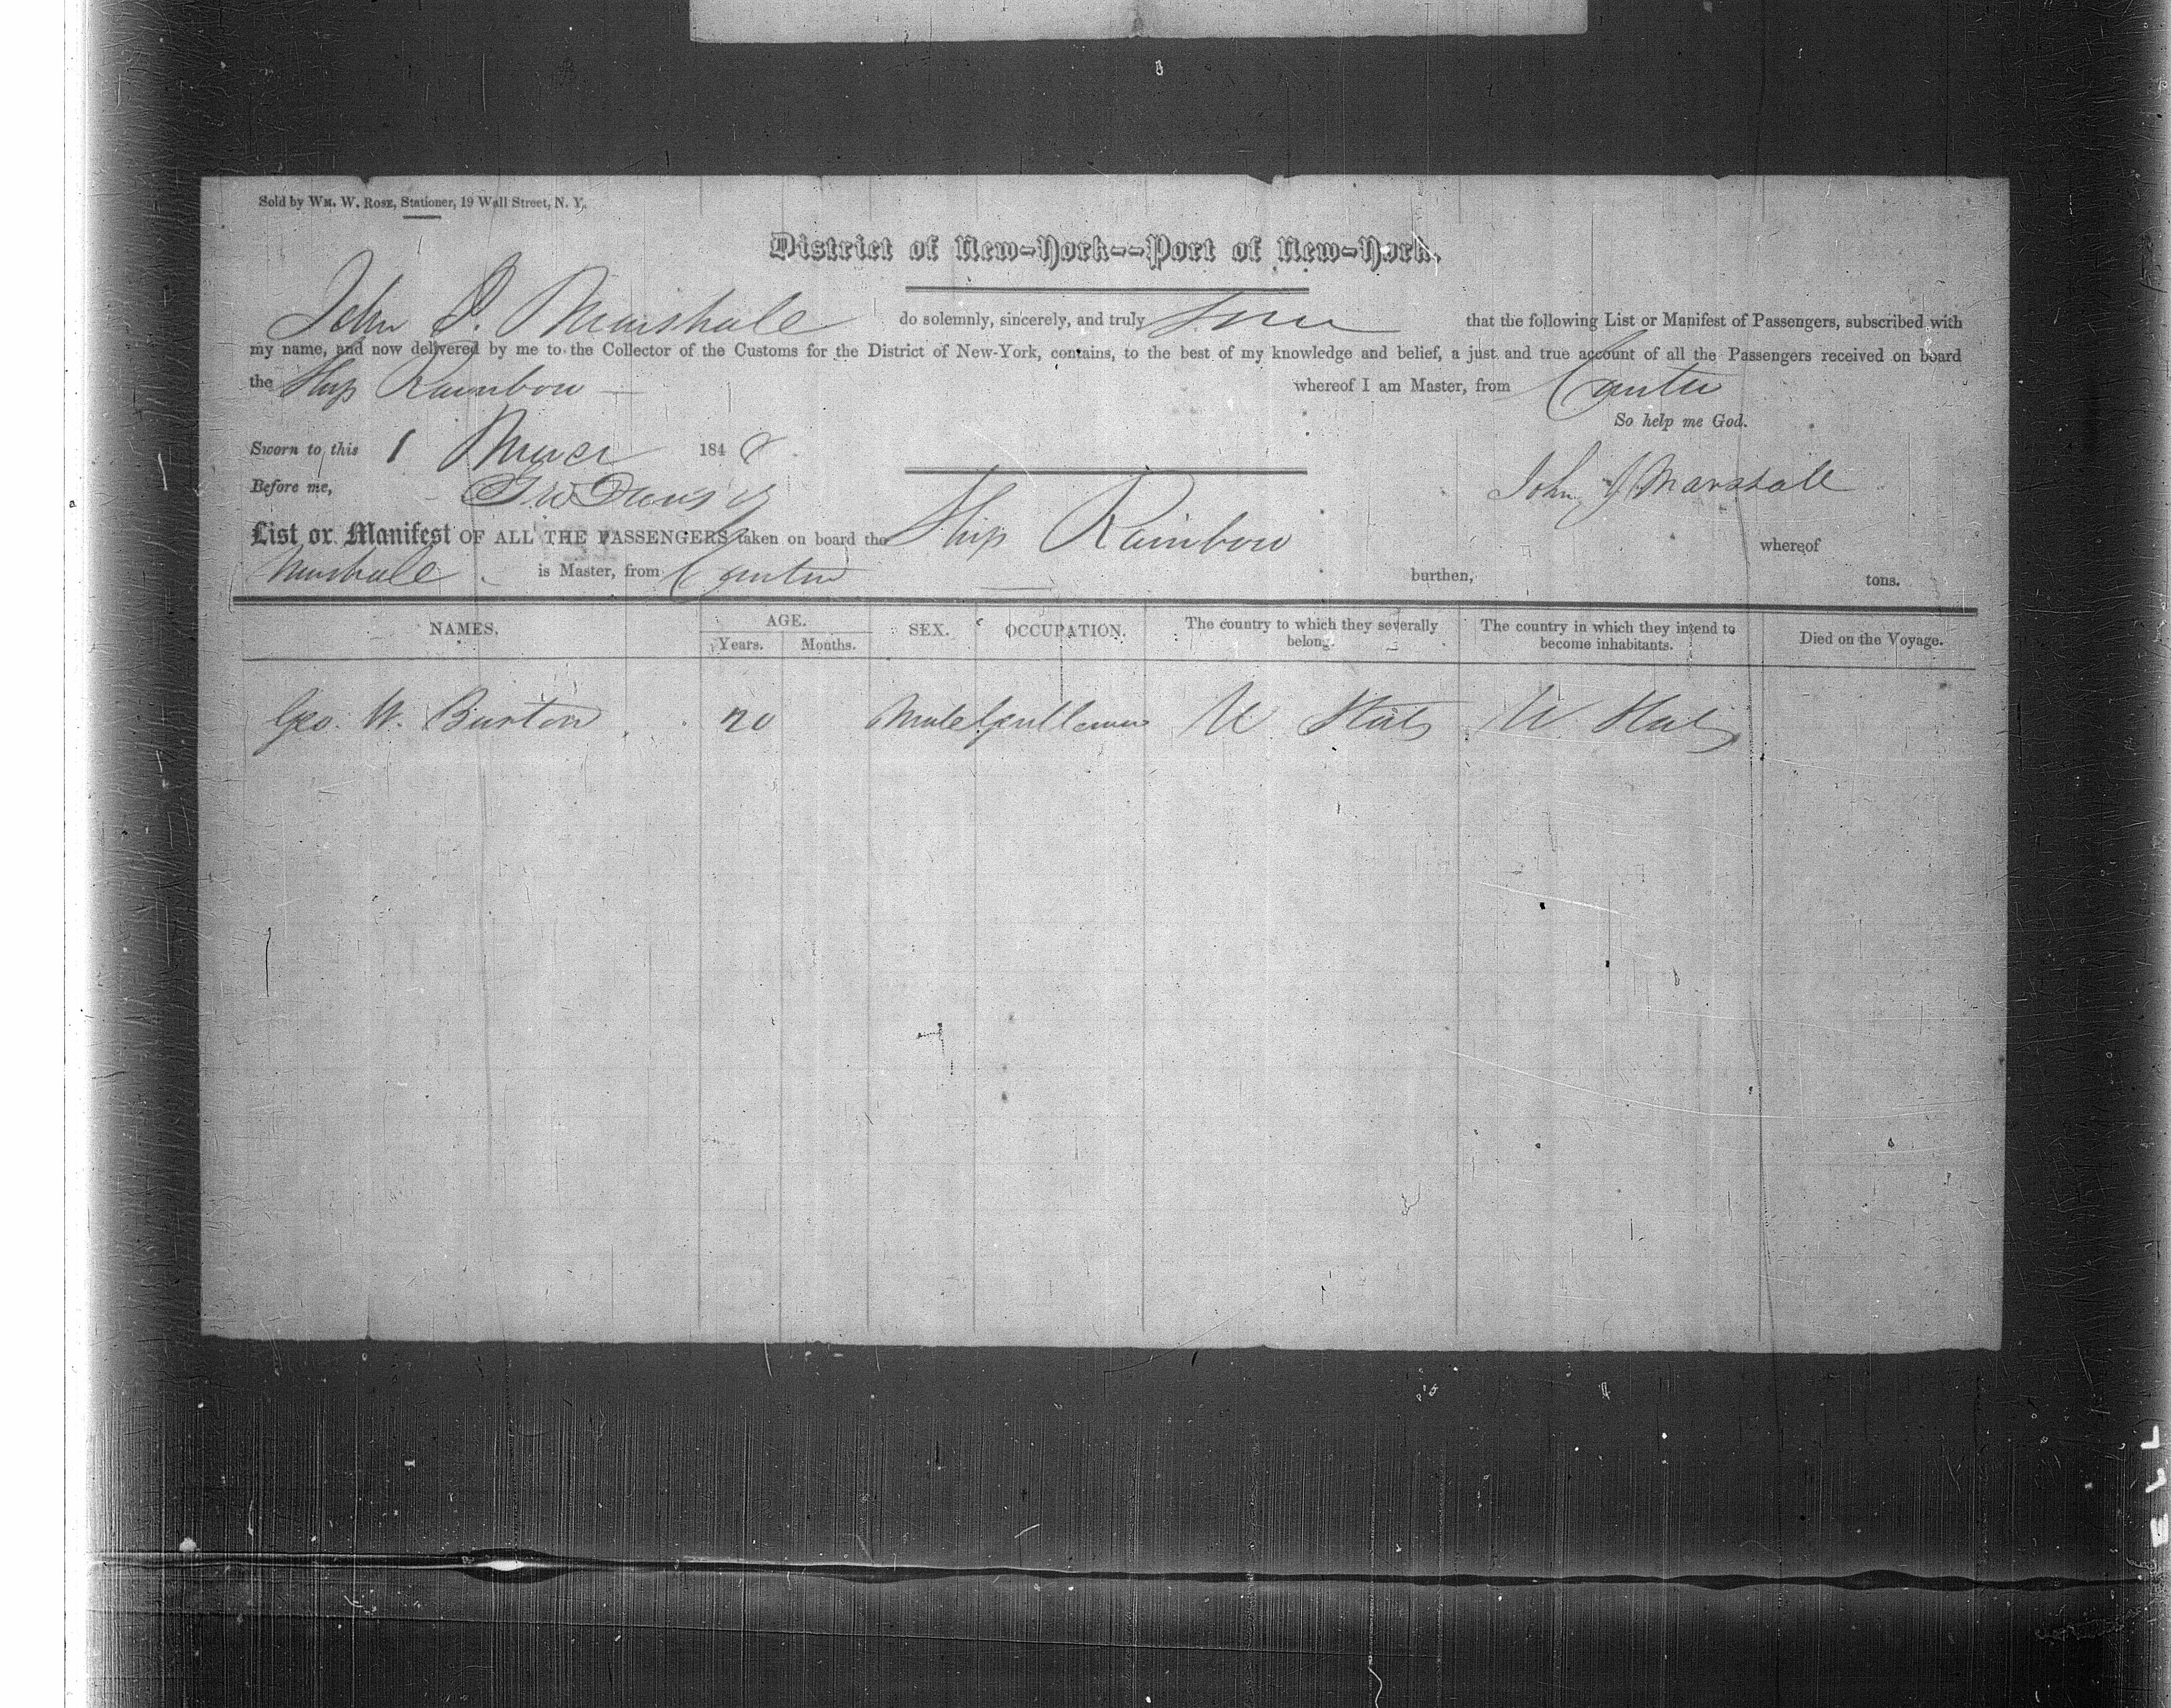 Sold by WM. W. ROSE, Stationer, 19 Wall Street, N. Y.
District of New-York--Port of New-York.
John J. Marshall do solemnly, sincerely, and truly that the following List or Manifest of Passengers, subscribed with
my name, and now delivered by me to the Collector of the Customs for the District of New-York, contains, to the best of my knowledge and belief, a just and true account of all the Passengers received on board
the Ship Rainbow whereof I am Master, from Canton
So help me God.
Sworn to this 1 184 8
Before me, John J Marshall
List or Manifest OF ALL THE PASSENGERS taken on board the Ship Rainbow whereof
Marshall is Master, from Canton burthen, tons.
NAMES. AGE. SEX. OCCUPATION. The country to which they severally belong. The country in which they intend to become inhabitants. Died on the Voyage.
Years. Months.
Geo. W. Burton 20 Male Gentleman U States U States